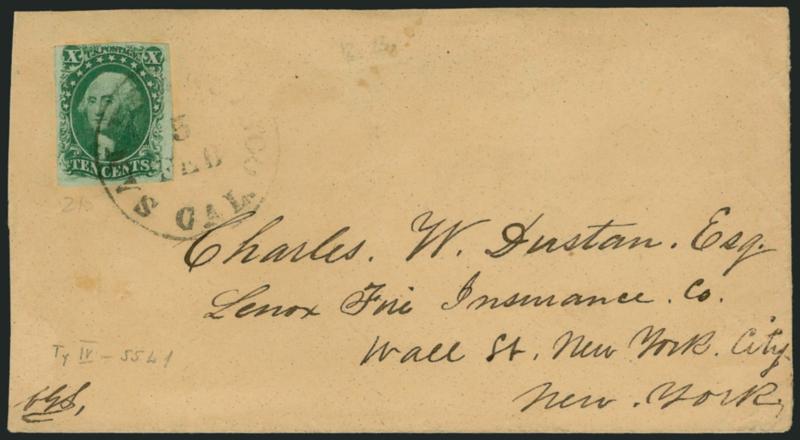 X U.S. POSTAGE X
TEN CENTS
5
FEB
SAN CAL
Charles. W. Dustan. Esq.
Lenox Fire Insurance. Co.
Wall St. New York. City
New. York.
Ty IV – 55L1